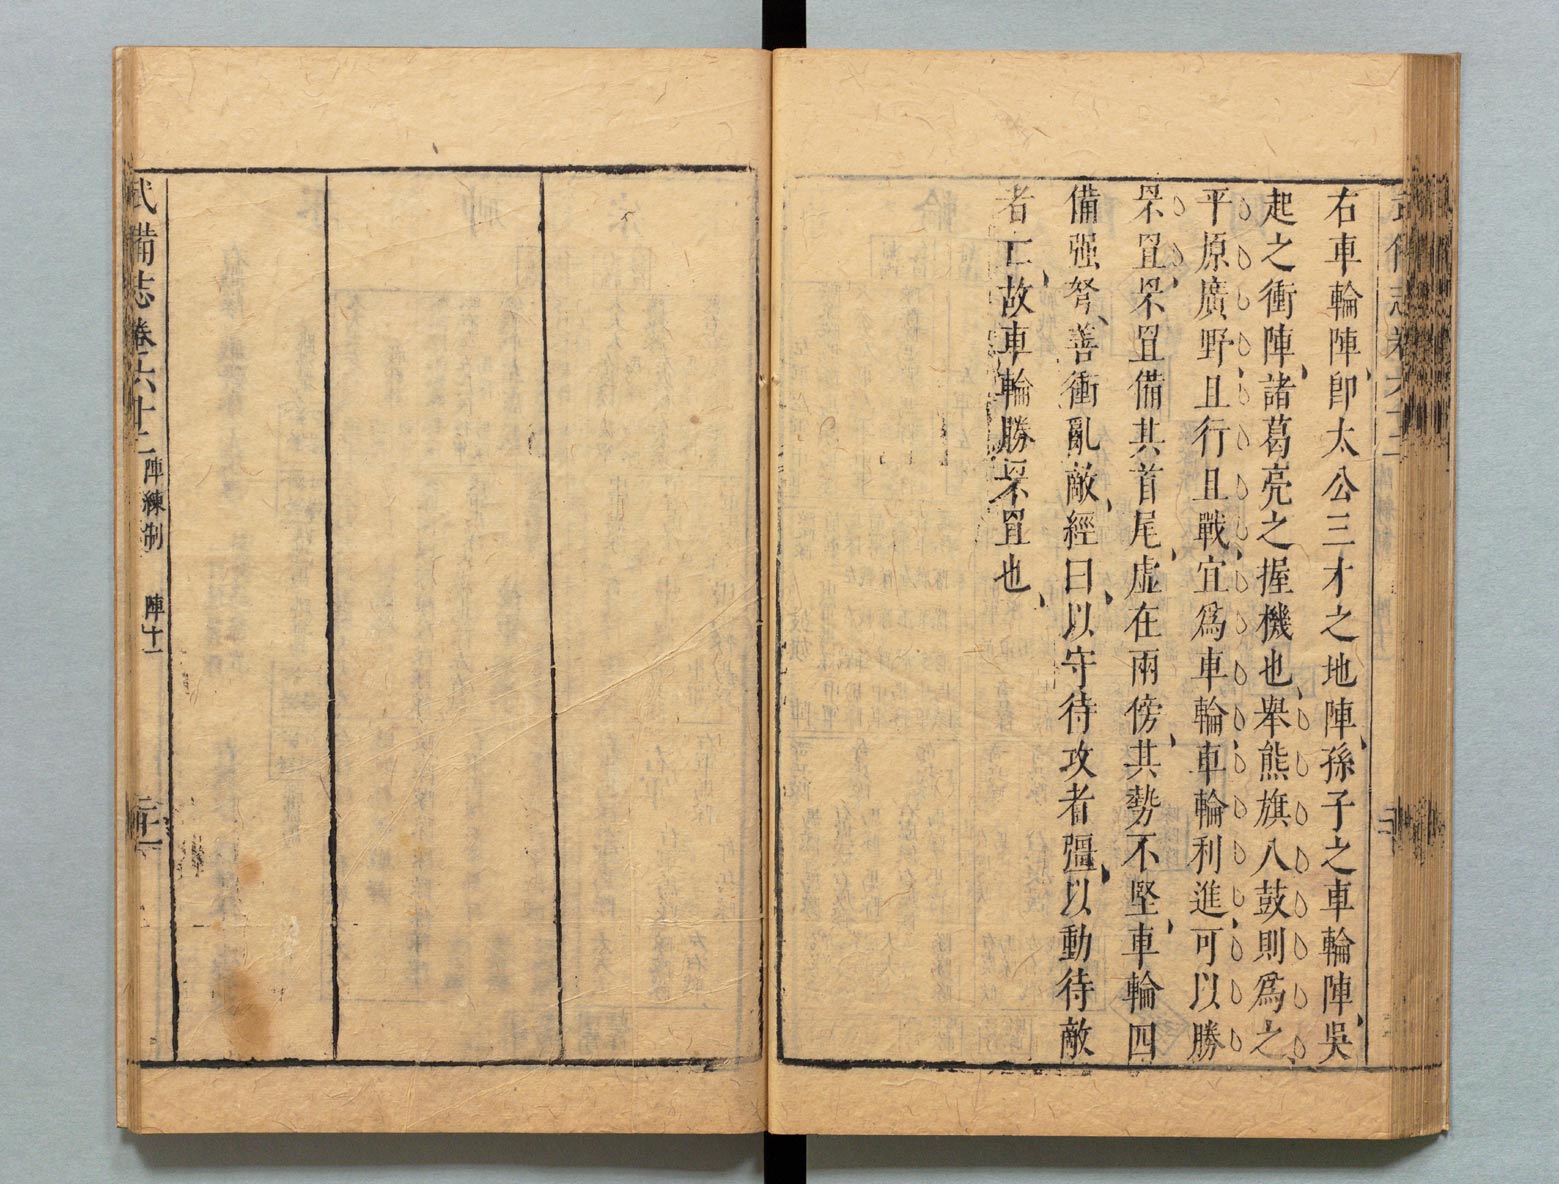 右車輪陣卽太公三才之地陣孫子之車輪陣吳
起之衝陣諸葛亮之握機也舉熊旗八鼓則爲之
平原廣野且行且戰宜爲車輪車輪利進可以勝
罘罝罘罝備其首尾虛在兩傍其勢不堅車輪四
備强弩善衝亂敵經曰以守待攻者彊以動待敵
者亡故車輪勝罘罝也
武備志卷六十二
陣練制 陣十一